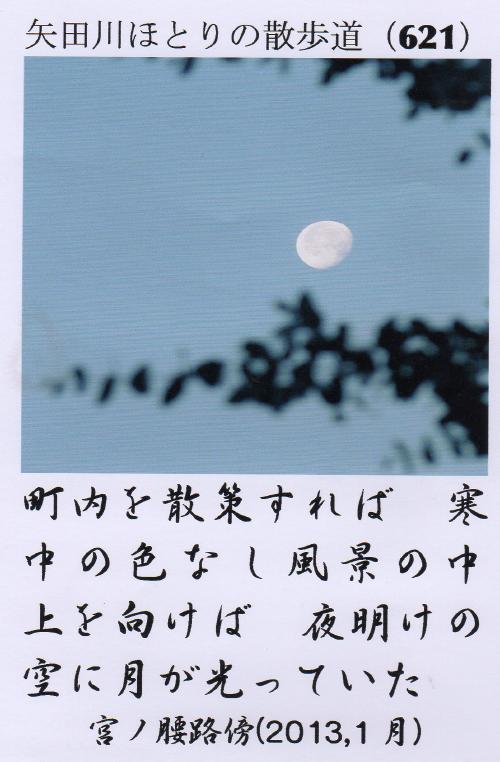 矢田川ほとりの散歩道（621）
町内を散策すれば　寒
中の色なし風景の中
上を向けば　夜明けの
空に月が光っていた
宮ノ腰路傍(2013,1 月)